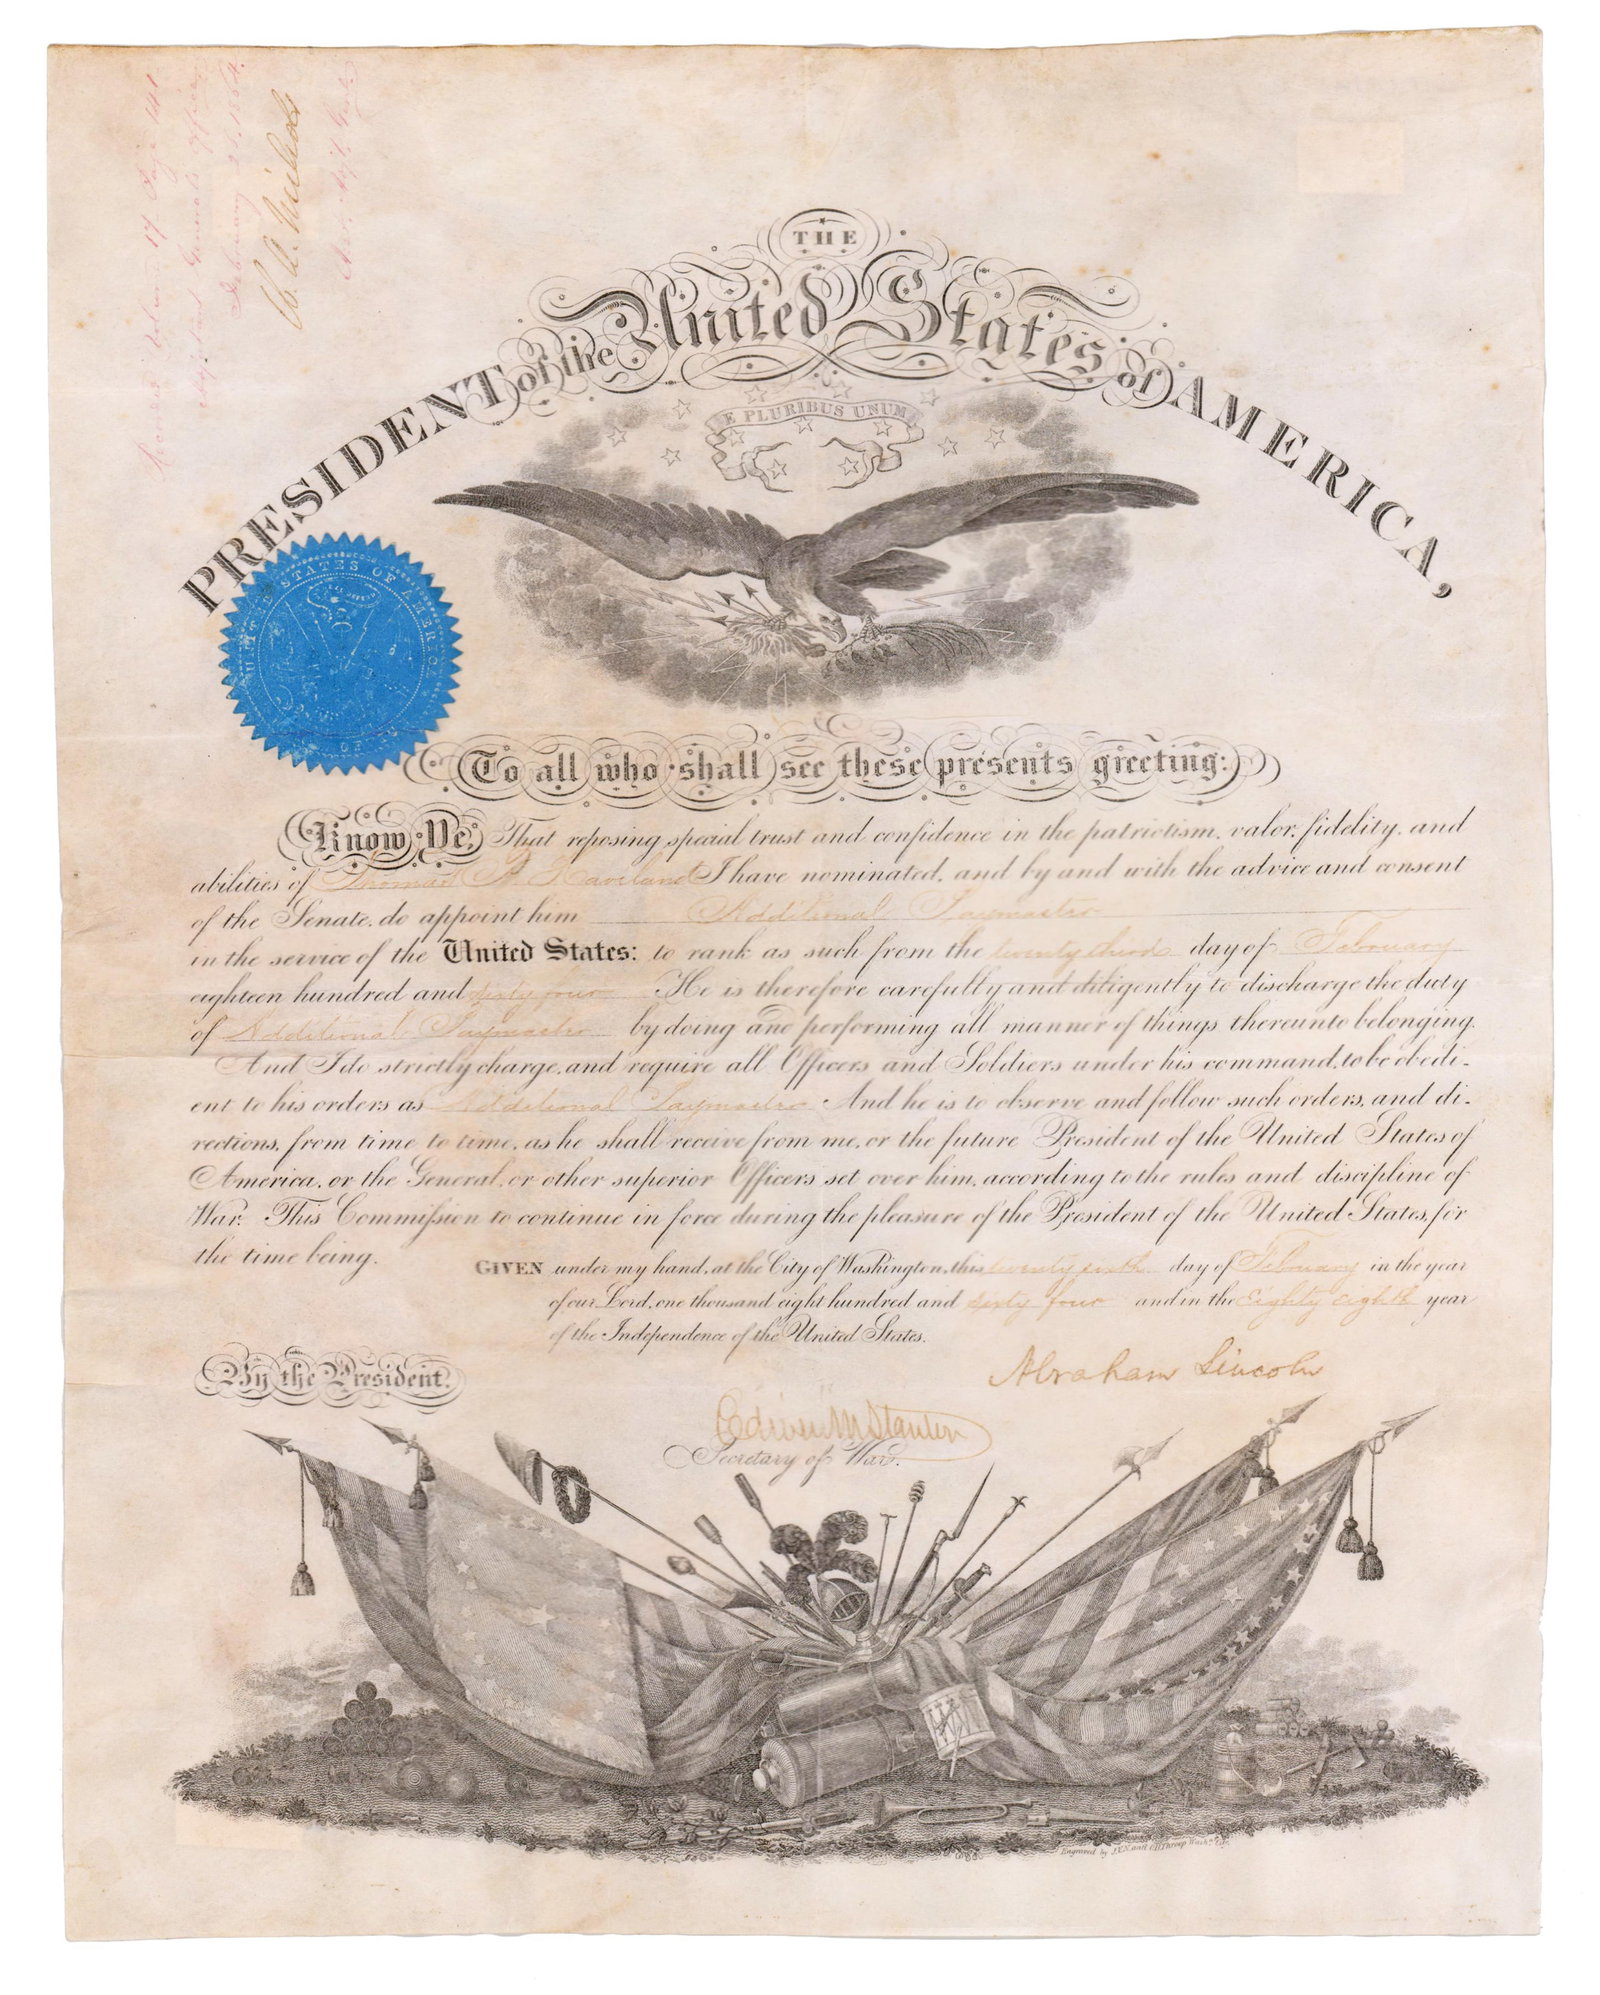 Recorded Volume 17 Page 141
Adjutant General's Office
February 25, 1864.
Asst. Adjt. Genl.
THE
PRESIDENT of the United States of AMERICA,
E PLURIBUS UNUM
UNITED STATES OF AMERICA
To all who shall see these presents greeting:
Know Ye, That reposing special trust and confidence in the patriotism, valor, fidelity, and
abilities of Thomas P. Haviland I have nominated, and by and with the advice and consent
of the Senate, do appoint him Additional Paymaster
in the service of the United States: to rank as such from the twenty third day of February
eighteen hundred and sixty four He is therefore carefully and diligently to discharge the duty
of Additional Paymaster by doing and performing all manner of things thereunto belonging.
And I do strictly charge, and require all Officers and Soldiers under his command, to be obedi-
ent to his orders as Additional Paymaster And he is to observe and follow such orders, and di-
rections, from time to time, as he shall receive from me, or the future President of the United States of
America, or the General, or other superior Officers set over him, according to the rules and discipline of
War. This Commission to continue in force during the pleasure of the President of the United States, for
the time being.
GIVEN under my hand, at the City of Washington, this twenty sixth day of February in the year
of our Lord, one thousand eight hundred and sixty four and in the Eighty eighth year
of the Independence of the United States.
By the President.
Abraham Lincoln
Edwin M Stanton
Secretary of War.
Engraved by J.V.N. and O.H. Throop Washn. City